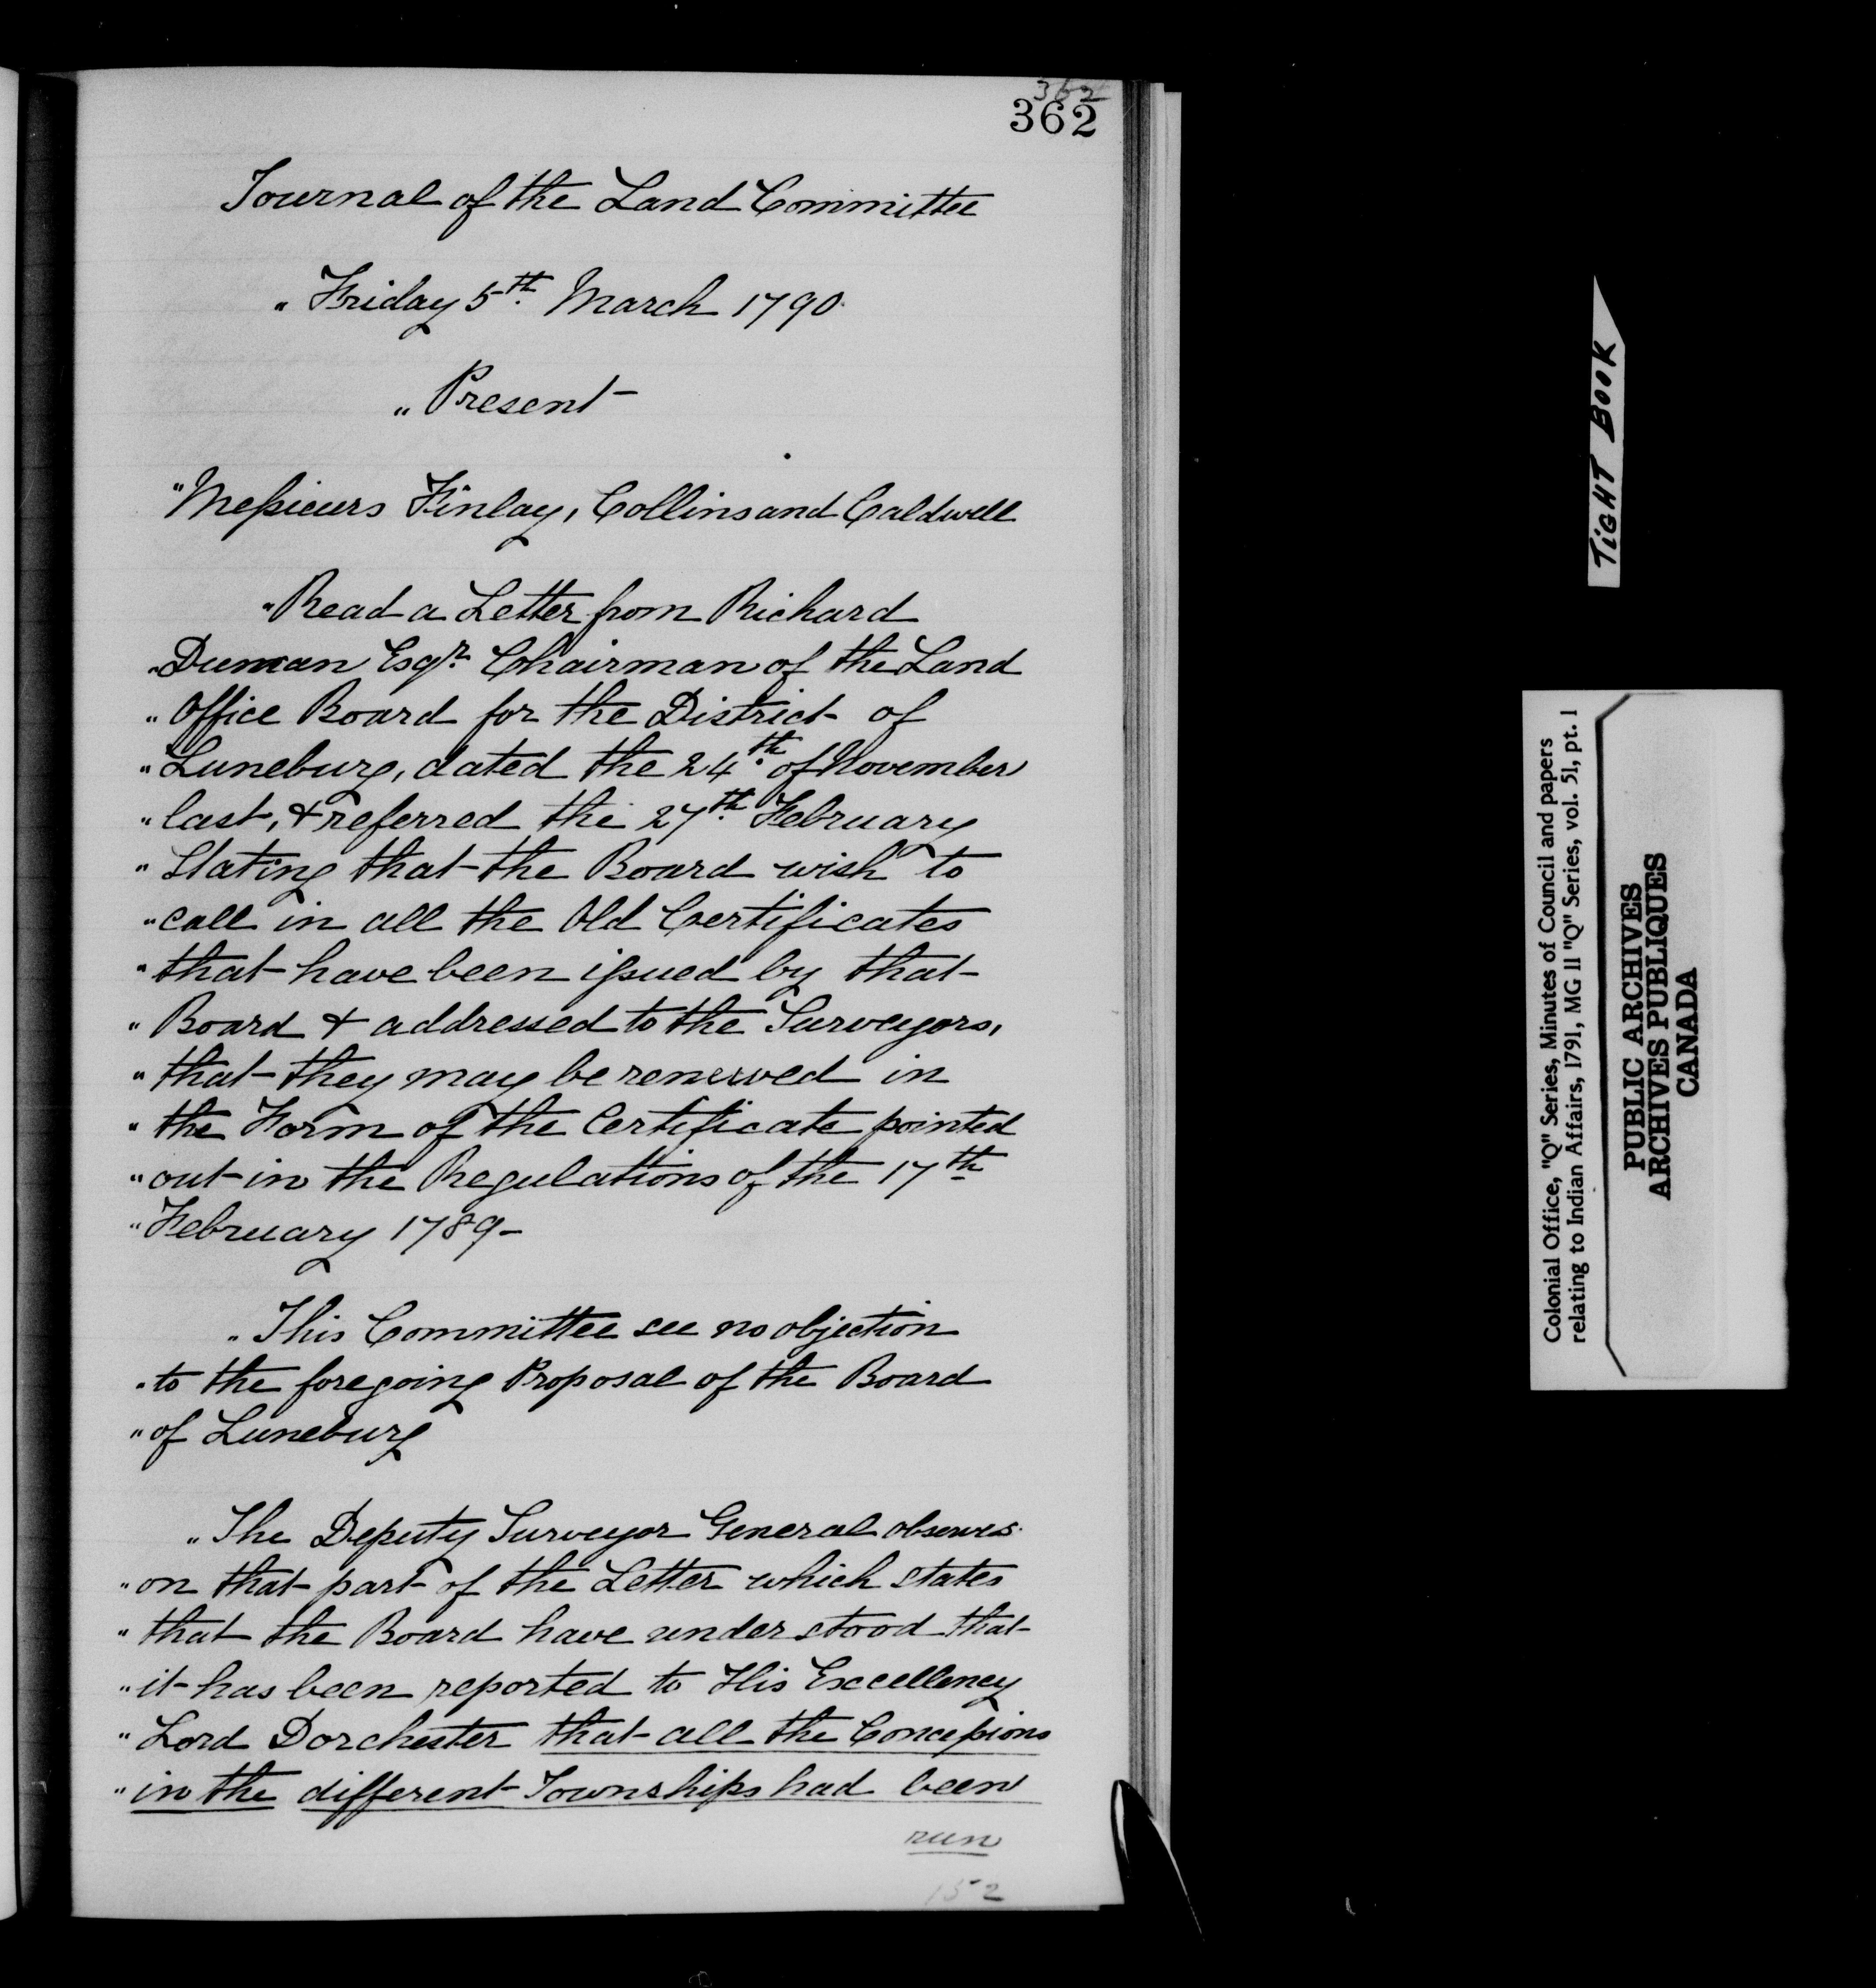 362
362
Journal of the Land Committee
" Friday 5th March 1790.
" Present
" Messieurs Finlay, Collins and Caldwell
" Read a Letter from Richard
" Duncan Esqr. Chairman of the Land
" Office Board for the District of
" Luneburg, dated the 24th of November
" last, & referred the 27th February
" Stating that the Board wish to
" call in all the Old Certificates
" that have been issued by that
" Board & addressed to the Surveyors,
" that they may be renewed in
" the Form of the Certificate pointed
" out in the Regulations of the 17th
" February 1789-
" This Committee see no objection
" to the foregoing Proposal of the Board
" of Luneburg
" The Deputy Surveyor General observes
" on that part of the Letter which states
" that the Board have understood that
" it has been reported to His Excellency
" Lord Dorchester that all the Concessions
" in the different Townships had been
run
152
TIGHT BOOK
Colonial Office, "Q" Series, Minutes of Council and papers
relating to Indian Affairs, 1791, MG 11 "Q" Series, vol. 51, pt. 1
PUBLIC ARCHIVES
ARCHIVES PUBLIQUES
CANADA